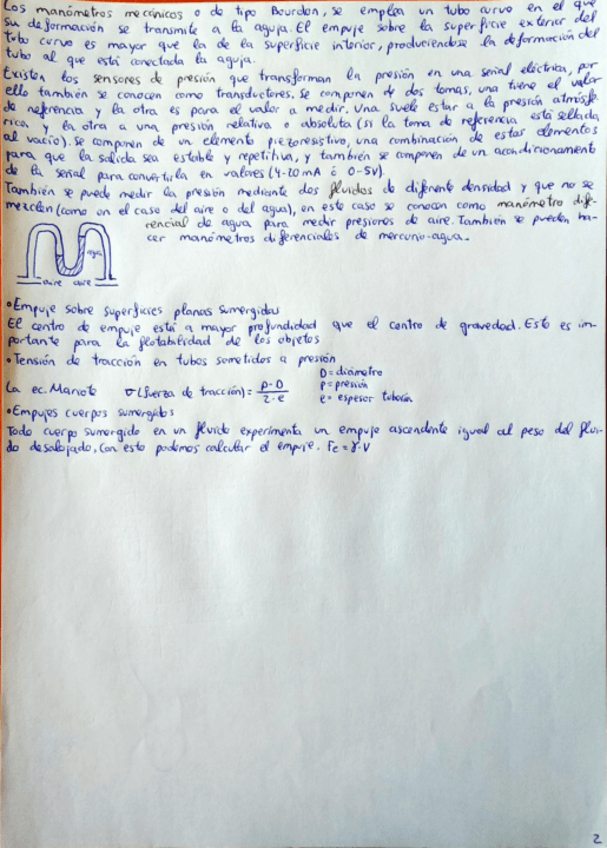 Los manómetros mecánicos o de tipo Bourdon, se emplea un tubo curvo en el que
su deformación se transmite a la aguja. El empuje sobre la superficie exterior del
tubo curvo es mayor que la de la superficie interior, produciendose la deformación del
tubo al que está conectada la aguja.
Existen los sensores de presión que transforman la presión en una señal eléctrica, por
ello también se conocen como transductores. Se componen de dos tomas, una tiene el valor
de referencia y la otra es para el valor a medir. Una suele estar a la presión atmosfé-
rica y la otra a una presión relativa o absoluta (si la toma de referencia está sellada
al vacío). Se componen de un elemento piezoresistivo, una combinación de estos elementos
para que la salida sea estable y repetitiva, y también se componen de un acondicionamento
de la señal para convertirla en valores (4-20 mA ó 0-5V).
También se puede medir la presión mediante dos fluidos de diferente densidad y que no se
mezclen (como en el caso del aire o del agua), en este caso se conocen como manómetro dife-
rencial de agua para medir presiones de aire. También se pueden ha-
cer manómetros diferenciales de mercurio-agua.
agua
aire aire
•Empuje sobre superficies planas sumergidas
El centro de empuje está a mayor profundidad que el centro de gravedad. Esto es im-
portante para la flotabilidad de los objetos
•Tensión de tracción en tubos sometidos a presión
D=diámetro
La ec. Mariote σ(fuerza de tracción)= p·D / 2·e
p=presión
e= espesor tubería
•Empujes cuerpos sumergidos
Todo cuerpo sumergido en un fluido experimenta un empuje ascendente igual al peso del flui-
do desalojado. Con esto podemos calcular el empuje. Fe=γ·V
2